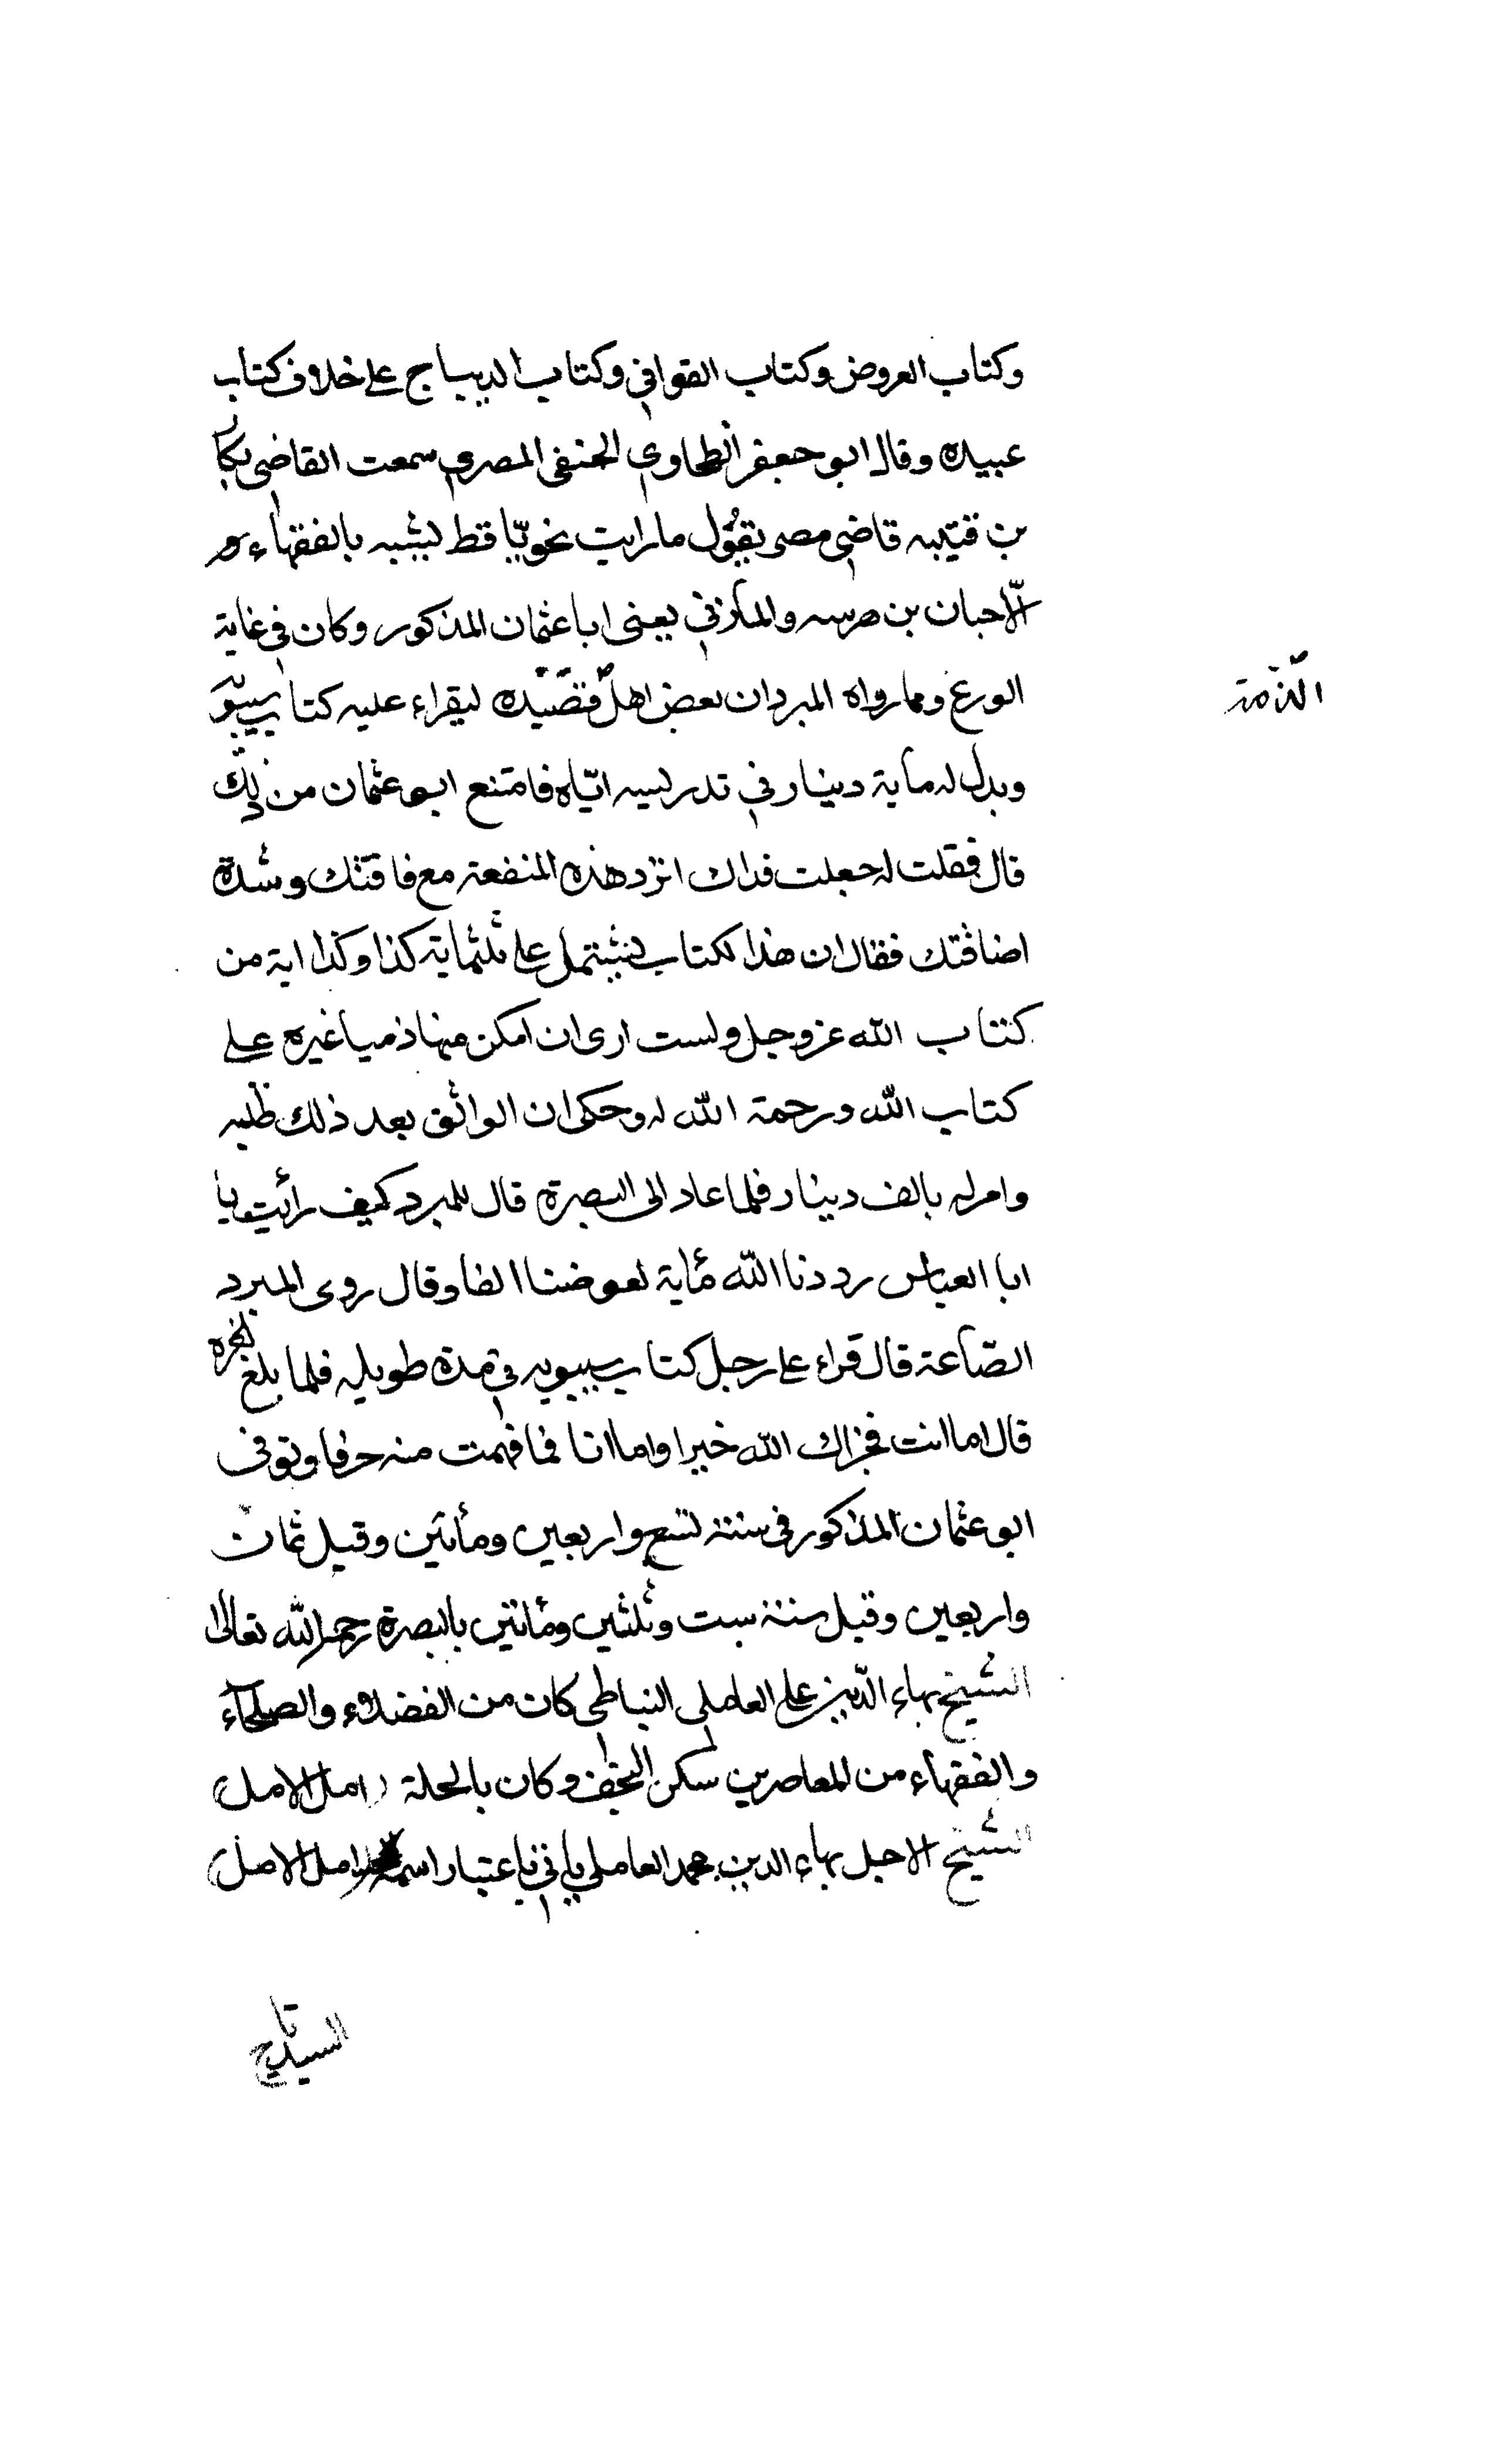 وكتاب العروض وكتاب القوافي وكتاب الديباج على خلاف كتاب
عبيده وقال ابو جعفر الطحاوي الحنفي المصري سمعت القاضي بكا
بن قتيبه قاضي مصر يقول ما رايت نحويّا قط يشبه بالفقهاء
الّا حبان بن هرمه والمازني يعنى ابا عثمان المذكور وكان في غاية
الورع ومما رواه المبرد ان بعض اهل قصده ليقراء عليه كتاب سيبويه
الذمة
وبدل له ماية دينار في تدريسه ايّاه فامتنع ابو عثمان من ذلك
قال فقلت له جعلت فداك اترد هذه المنفعة مع فاقتك وشدة
اضاقتك فقال ان هذا لكتاب يشتمل على ثلثماية كذا وكذا اية من
كتاب الله عز وجل ولست ارى ان امكن منها ذميا غيره على
كتاب الله ورحمة الله له وحكى ان الواثق بعد ذلك طلبه
وامر له بالف دينار فلما عاد الى البصرة قال للمبرد كيف رأيت يا
ابا العباس رددنا الله مأية فعوضنا الفا وقال روى المبرد
الصّاعة قال قراء على رجل كتاب سيبويه في مدة طويله فلما بلغ اخره
قال اما انت فجزاك الله خيرا واما انا فما فهمت منه حرفا وتوفى
ابو عثمان المذكور في سنة تسع واربعين ومأتين وقيل ثمان
واربعين وقيل سنة ست وثلثين ومأتين بالبصرة رحمه الله تعالى
الشيخ بهاء الدّين علي العاملي النباطي كان من الفضلاء والصلحاء
والفقهاء من المعاصرين سكن النجف وكان بالحلة (امل الامل)
الشيخ الاجل بهاء الدين محمد العاملي ياتي باعتبار اسمه (امل الامل)
السيد تاج